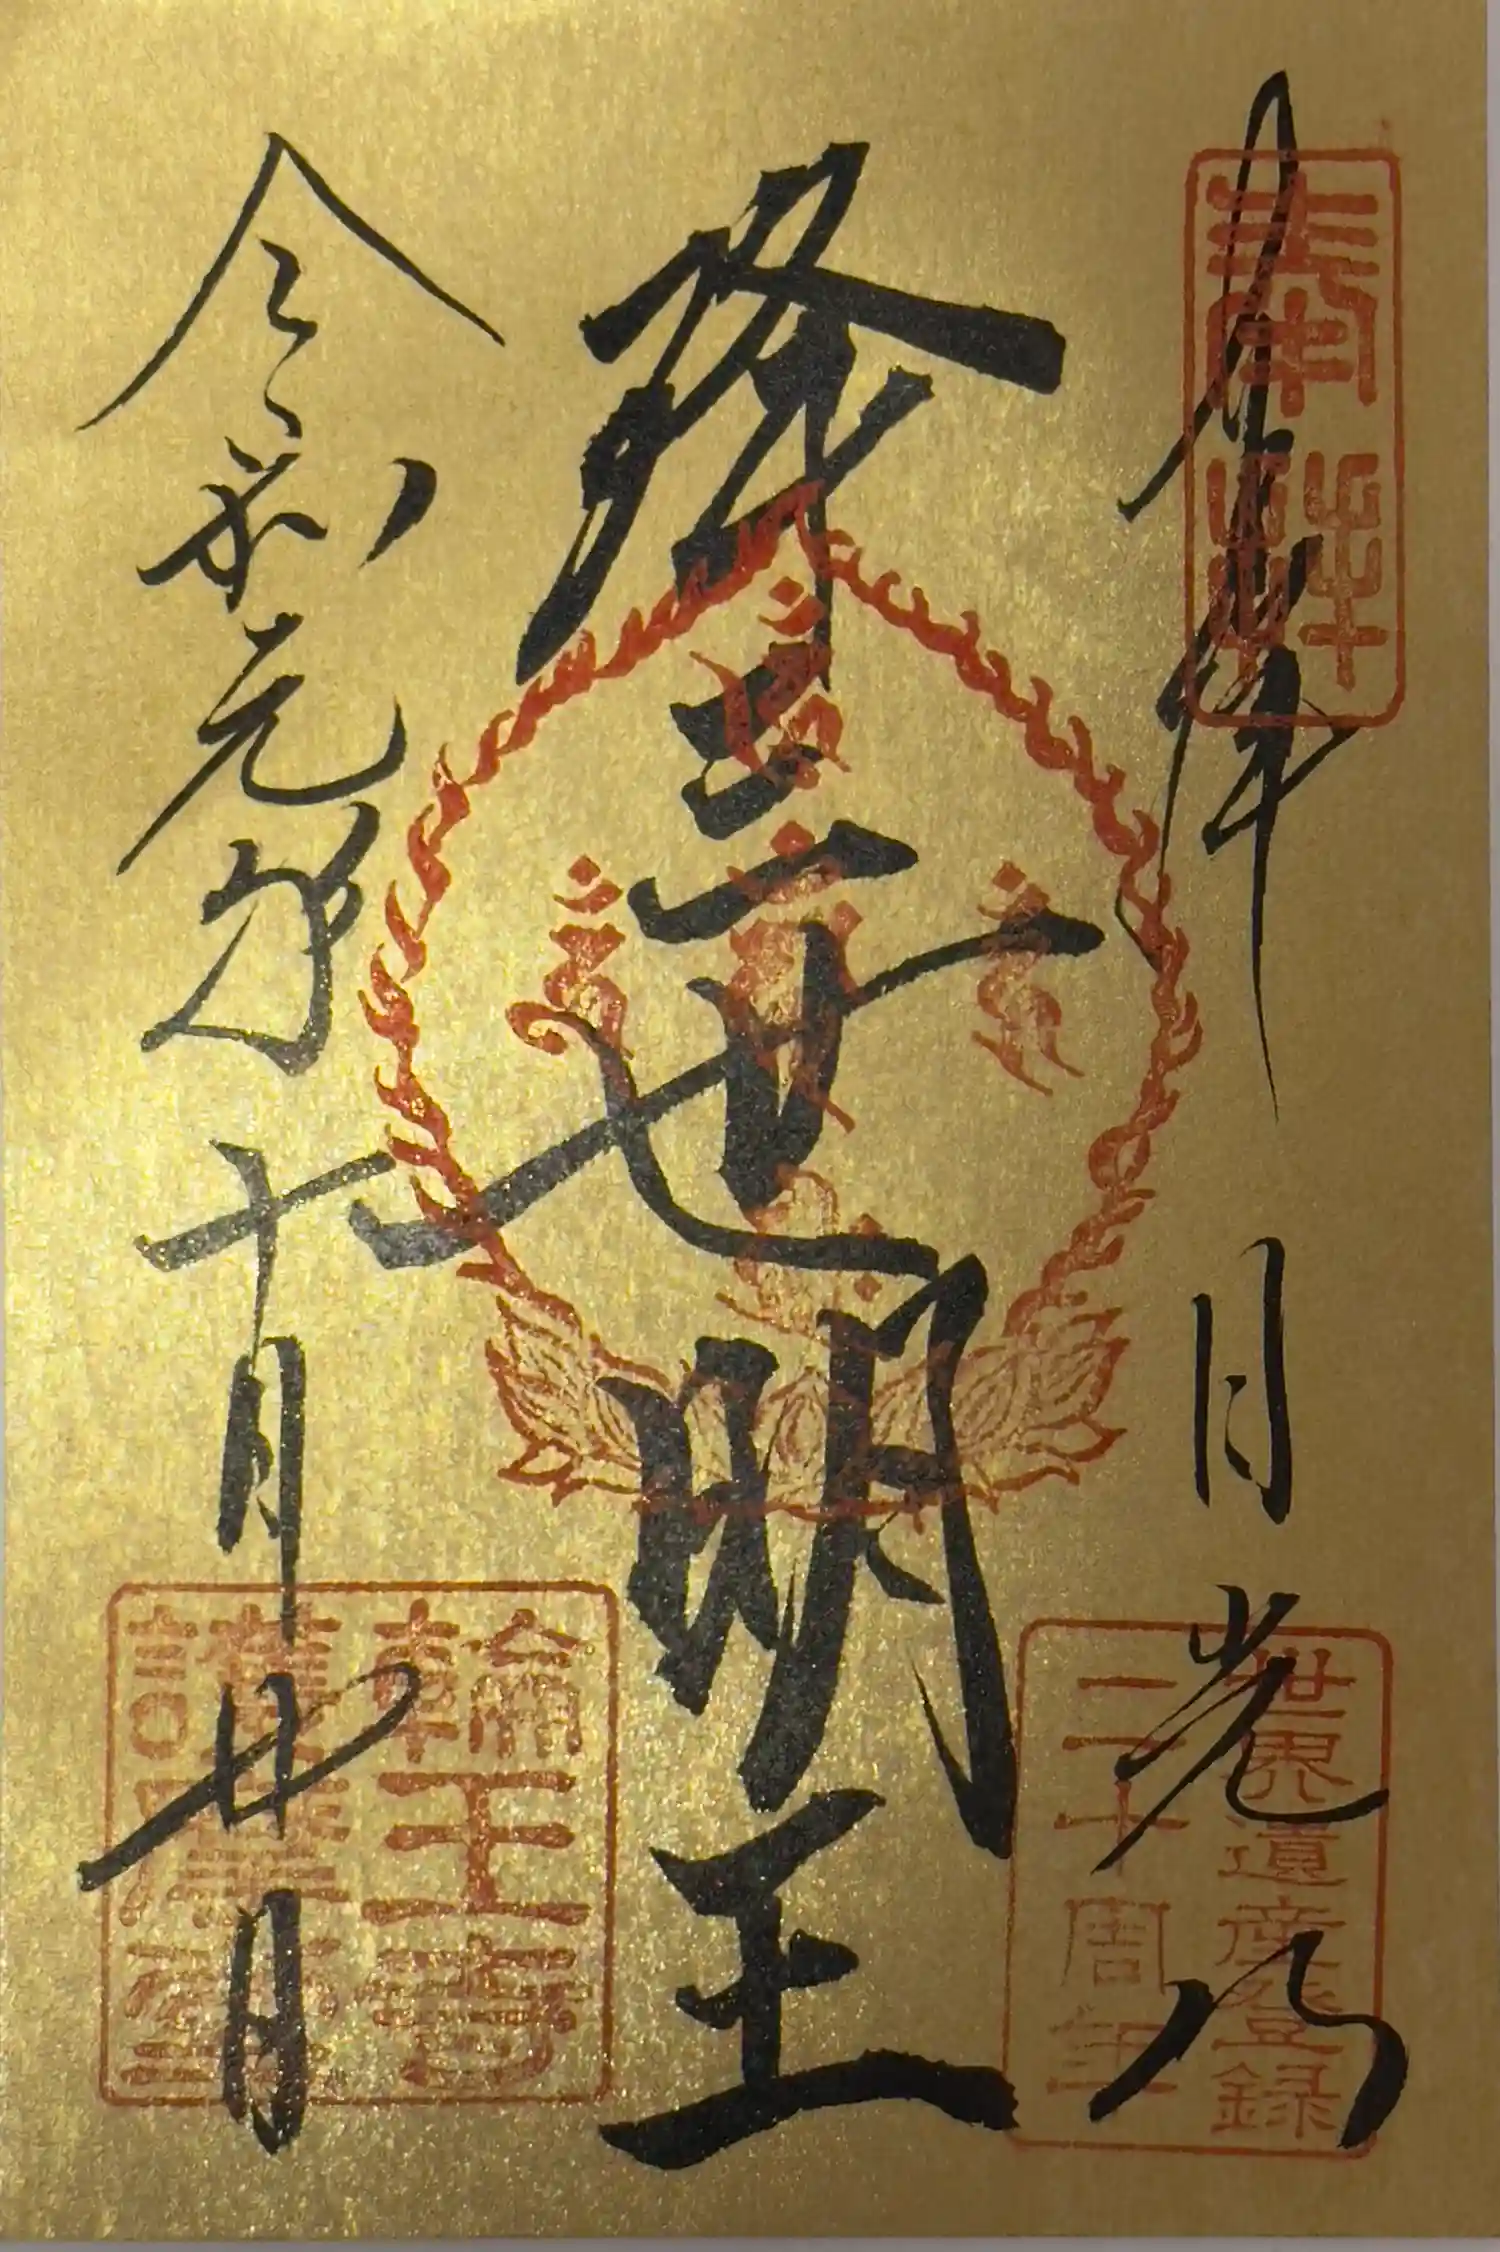 奉拝
日光山
降三世明王
令和元年十月廿日
奉拝
世界遺産登録
二十周年
輪王寺
護摩堂